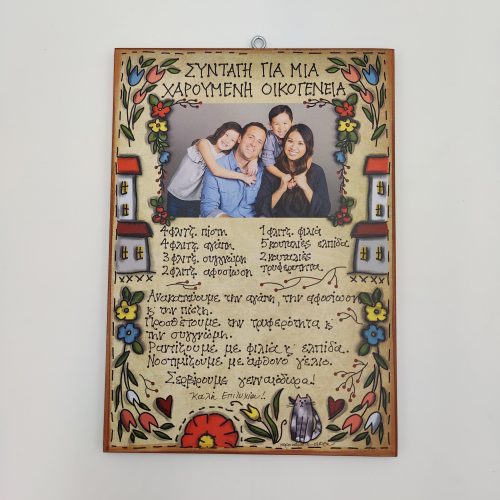 ΣΥΝΤΑΓΗ ΓΙΑ ΜΙΑ
ΧΑΡΟΥΜΕΝΗ ΟΙΚΟΓΕΝΕΙΑ
4 φλιτζ. πίστη
4 φλιτζ. αγάπη
3 φλιτζ. συγγνώμη
2 φλιτζ. αφοσίωση
1 φλιτζ. φιλιά
5 κουταλιές ελπίδα
2 κουταλιές
τρυφερότητα
Ανακατεύουμε την αγάπη, την αφοσίωση
κ την πίστη.
Προσθέτουμε την τρυφερότητα κ
την συγγνώμη.
Ραντίζουμε με φιλιά κ ελπίδα.
Νοστιμίζουμε με άφθονο γέλιο.
Σερβίρουμε γενναιόδωρα!
Καλή Επιτυχία!